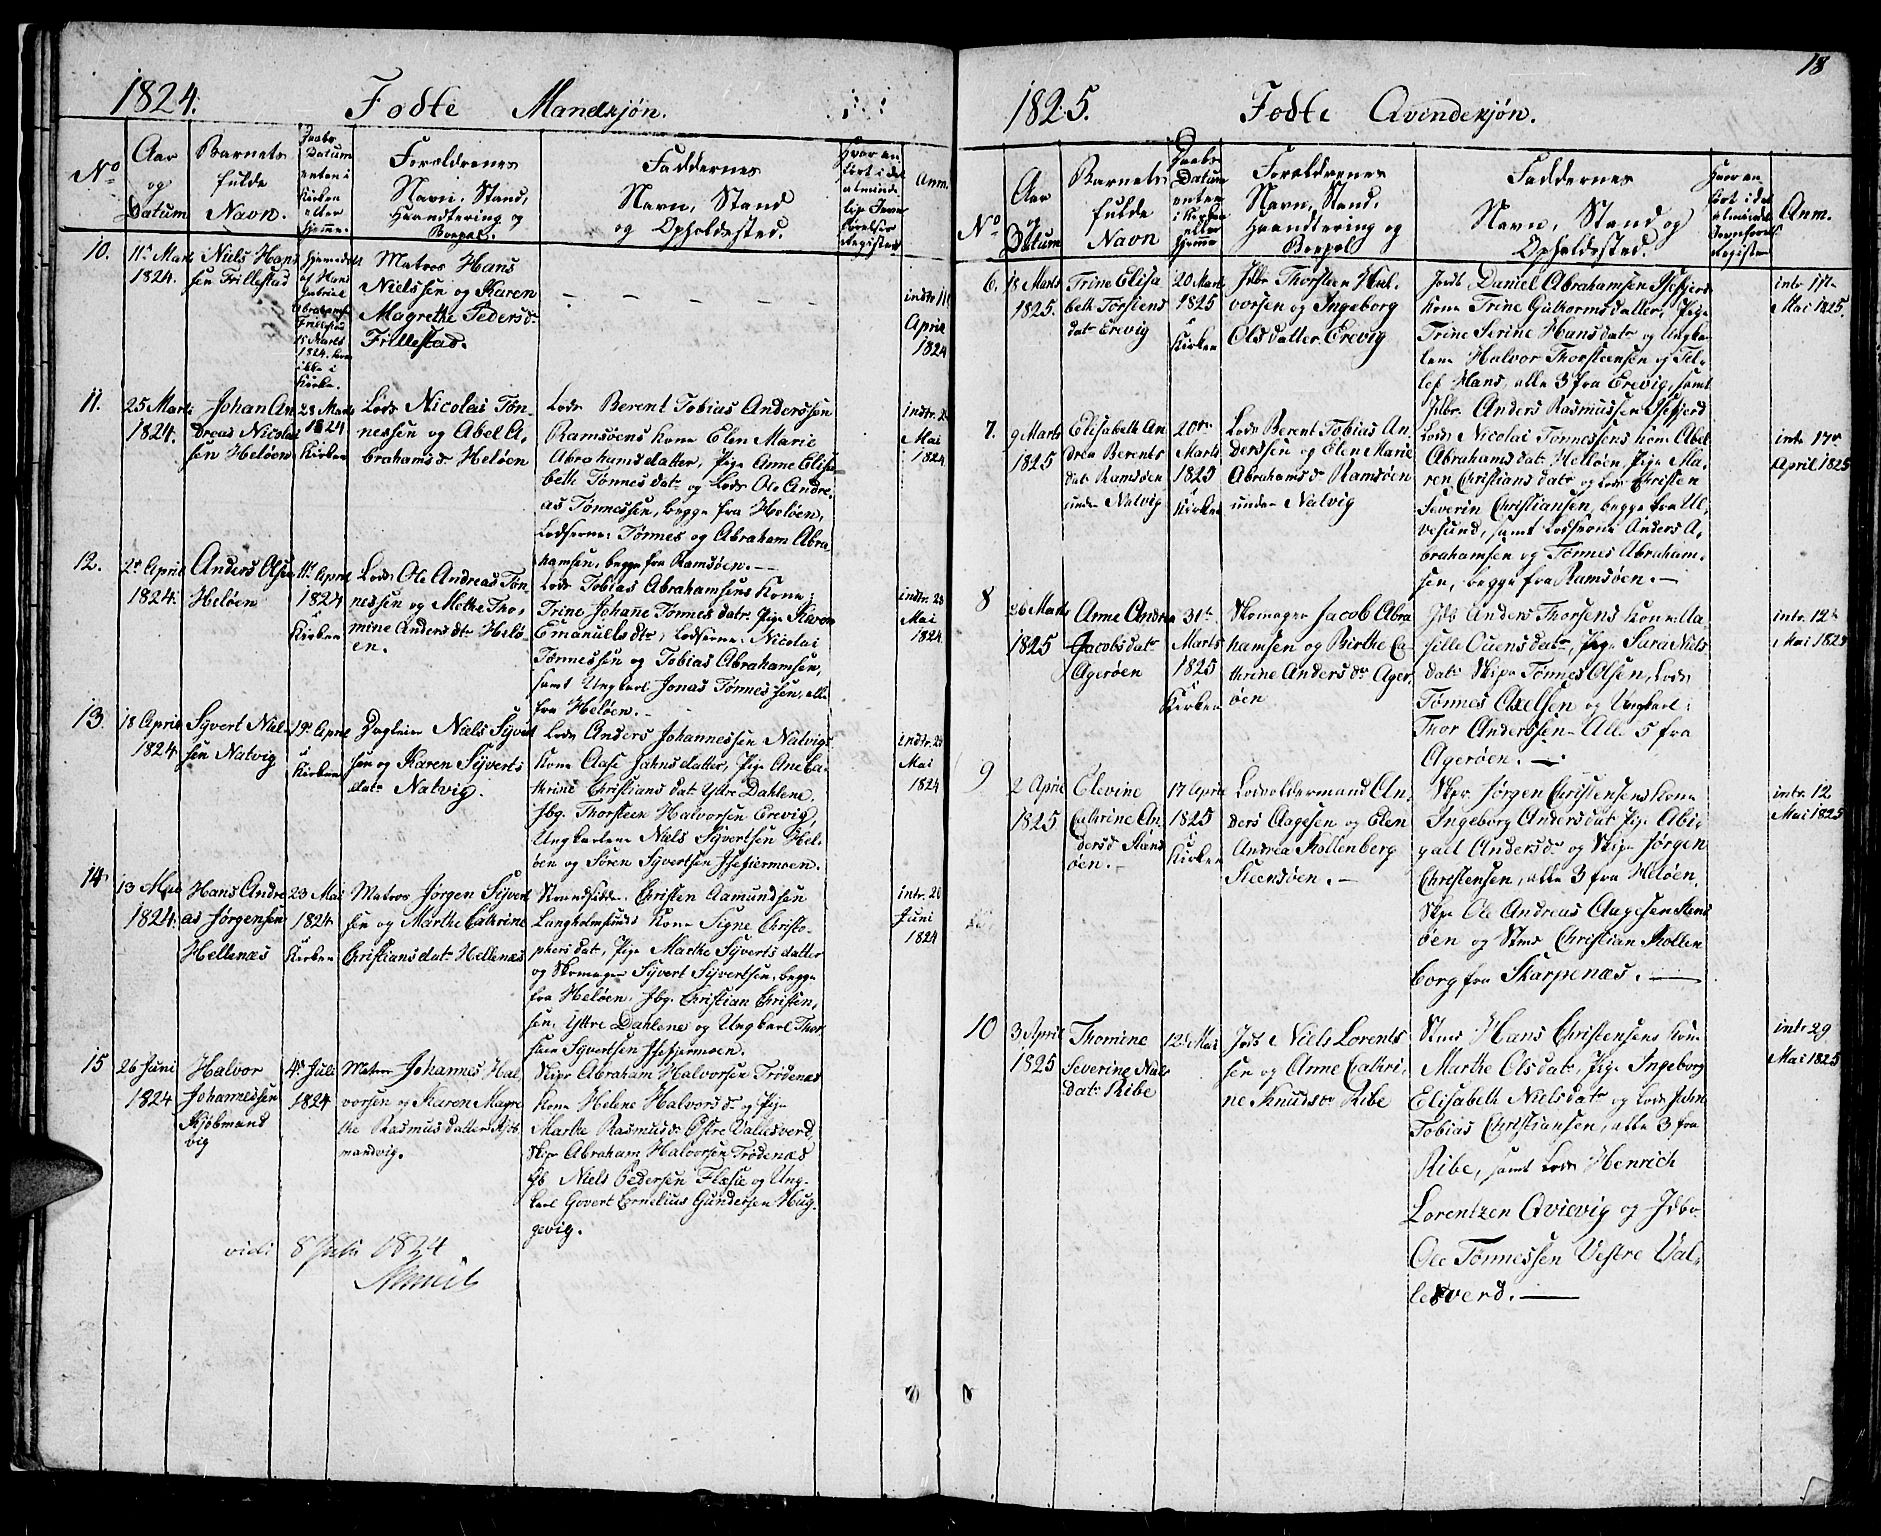 1824.
Fødte Mandkjøn.
No
Aar
og
Datum
Barnets
fulde
Navn.
Daabs
Datum
enten i
Kirken
eller
Hjemme.
Forældrenes
Navn, Stand,
Haandtering og
Boepæl.
Faddernes
Navn, Stand
og Opholdssted.
Hvor an
ført i det
alminde
lige Jevn
førelses
Register
Anm.
10.
11te Marts
1824.
Niels Hans
sen Frillestad
hjemedøbt
af Hans
Gabriel
Abrahams.
Frillestad
15 Marts
1824. kom
ikke i
Kirke.
Matros Hans
Nielssen og Karen
Magrethe Peders Dr
Frillestad.
indtr 11te
April
1824
11.
25 Marts
1824.
Johan An
dreas Nicolai
sen Heløen
28 Marts
1824
i
Kirken
Lods Nicolai Tøn-
nessen og Abel A,
brahams dr Heløen
Lods Berent Tobias Anderssen
Ramsøens Kone Elen Marie
Abrahamsdatter, Pige Anne Elisa
beth Tønnes datr og Lods Ole Andre,
as Tønnessen, begge fra Heløen,
Lodserne: Tønnes og Abraham Abra
hamsen, begge fra Ramsøen.-
indtr. 2
Mai
1824
12.
2den April
1824.
Anders Olsen
Heløen
11te April
1824
i
Kirken
Lods Ole Andreas Tøn
nessen og Mette Tho,
mine Anders dtr Helø-
en.
Lods Tobias Abrahamsens Kone;
Trine Johane Tønnes datr, Pige Karen
Emanuells dtr, Lodserne: Nicolai
Tønnessen og Tobias Abrahamsen,
samt Ungkarl Jonas Tønnessen, alle
fra Heløen.-
indtr. 23
Mai
1824
13.
18 April
1824
Syvert Niel-
sen Natvig
19de April
i
Kirken
Dagleier Niels Syvert
sen og Karen Syverts
datr Natvig.
Lods Anders Johannessen Natvigs
Kone Aase Jahnsdatter, Pige Ane Ca-
thrine Christians datr Yttre Dahlene,
Jbg. Thorsteen Halvorsen Erevig,
Ungkarlene Niels Syvertsen Hel-
øen og Søren Syvertsen Isefjermoen.
indtr. 23
Mai
1824
14
13 Mai
1824.
Hans Andre
as Jørgensen
Hellenæs
23 Mai
1824
i
Kirken
Matros Jørgen Syvert
sen og Marthe Cathrine
Christians datr Hellenæs
Strandsidder Christen Aamundsen
Langholmsunds Kone Signe Christo-
phers datr, Pige Marthe Syverts datter
og Skomager Syvert Syvertsen, begge
fra Heløen, Jbg. Christian Christen,
sen, Yttre Dahlene og Ungkarl Thor
steen Syvertsen Isefjermoen.
intr. 20
Juni
1824
15
26 Juni
1824
Halvor
Johannessen
Kjøbmand
vig
4de Juli
1824
Matros Johannes Hal,
vorsen og Karen Magre
the Rasmusdatter Kjøb
mandvig.
Skipr Abraham Halvorsen Trødenæs
Kone Helene Halvors dr og Pige
Marthe Rasmusdr Østre Vallesverd,
Skipr Abraham Halvorsen Trødenæs
Jb Niels Pedersen Flæsie og Ung-
karl Govert Cornelius Gundersen Hug-
gevig.
vidi 8 Juli 1824
18
1825.
Fødte Qvindekjøn.
No
Aar
og
Datum
Barnets
fulde
Navn
Daabs
Datum
enten
i Kirken
eller
Hjemme
Forældrenes
Navn, Stand,
Haandtering og
Boepæl
Faddernes
Navn, Stand og
Opholdssted.
Hvor an
ført i det
almindel.
Jevnførels
Register
Anm.
6.
18 Marts
1825.
Trine Elisa
beth Torstens
datr Erevig
20 Marts
1825
i
Kirken
Jdbr Thorsteen Hal-
vorsen og Ingeborg
Olsdatter Erevig
Jords Daniel Abrahamsen Isefjerds
Kone Trine Guthormsdatter, Pige
Trine Serine Hans datr og Ungkar
lene Halvor Thorsteensen og Tel-
lef Hans, alle 3 fra Erevig, samt
Jdbr. Anders Rasmussen Isefjerd
intr 17de
Mai 1825.
7.
9 Marts
1825
Elisabeth An
drea Berents
datr Ramsøen
under Natvig
20de
Marts
1825
i
Kirken
Lods Berent Tobias An
derssen og Elen Marie
Abrahams dr Ramsøen
under Natvig
Lods Nicolai Tønnessens Kone Abel
Abrahams datr Helløen, Pige Ma,
ren Christians datr og Lods Christen
Severin Christiansen, begge fra Ul,
vesund, samt Lodserne Anders A,
brahamsen og Tønnes Abraham-
sen, begge fra Ramsøen.-
intr 17de
April 1825
8
26 Marts
1825
Anne Andrea
Jacobs datr
Agerøen
31te
Marts
1825
i
Kirken
Skomager Jacob Abra
hamsen og Birthe Ca-
thrine Anders dr Ager,
øen
Jds Anders Thorsens Kone: Aa-
sille Ouens datr, Pige Sara Niels
datr Skipr Tønnes Olsen, Lods
Tønnes Axelsen og Ungkarl:
Thor Anderssen - Alle 5 fra
Agerøen.-
intr. 12te
Mai 1825
9
2 April
1825
Elevine
Cathrine An,
dersd Steens
øen.-
17 April
1825
i
Kirken
Lodsoldermand An,
ders Aagesen og Elen
Andrea Kollenberg
Steensøen.-
Skpr Jørgen Christensens Kone
Ingeborg Anders datr Pige Abi,
gael Anders dr og Skipr Jørgen
Christensen, alle 3 fra Heløen,
Skpr Ole Andreas Aagesen Steens
øen og Stmd Christian Kollen
borg fra Skarpenæs.
intr. 12
Mai 1825
10
3 April
1825
Thomine
Severine Niels
datr Ribe
12te Mai
Jords Niels Lorents
sen og Anne Cathri-
ne Knudsdr Ribe
Stmd Hans Christensens Kone
Marthe Ols datr, Pige Ingeborg
Elisabeth Niels datr og Lods John
Tobias Christiansen, alle 3 fra
Ribe, samt Lods Henrich
Lorentzen Qvievig og Jdbr
Ole Tønnessen Vestre Val,
lesverd.
intr 29
Mai 1825